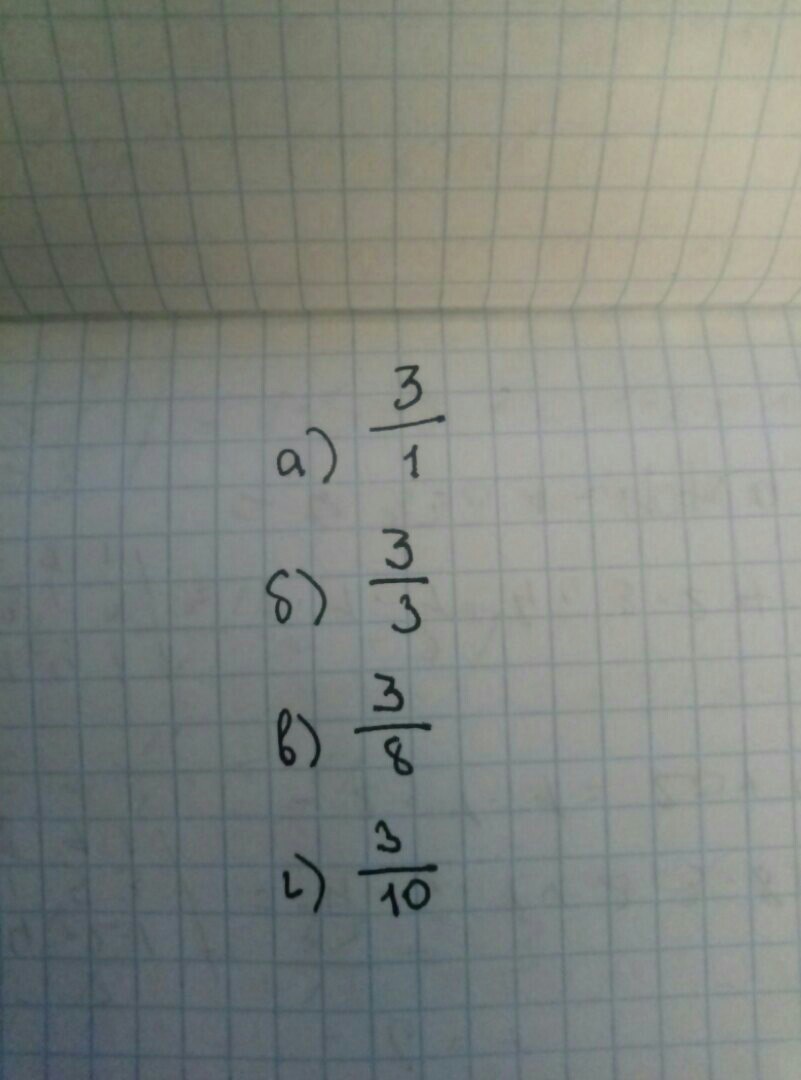 а) 3/1
б) 3/3
в) 3/8
г) 3/10